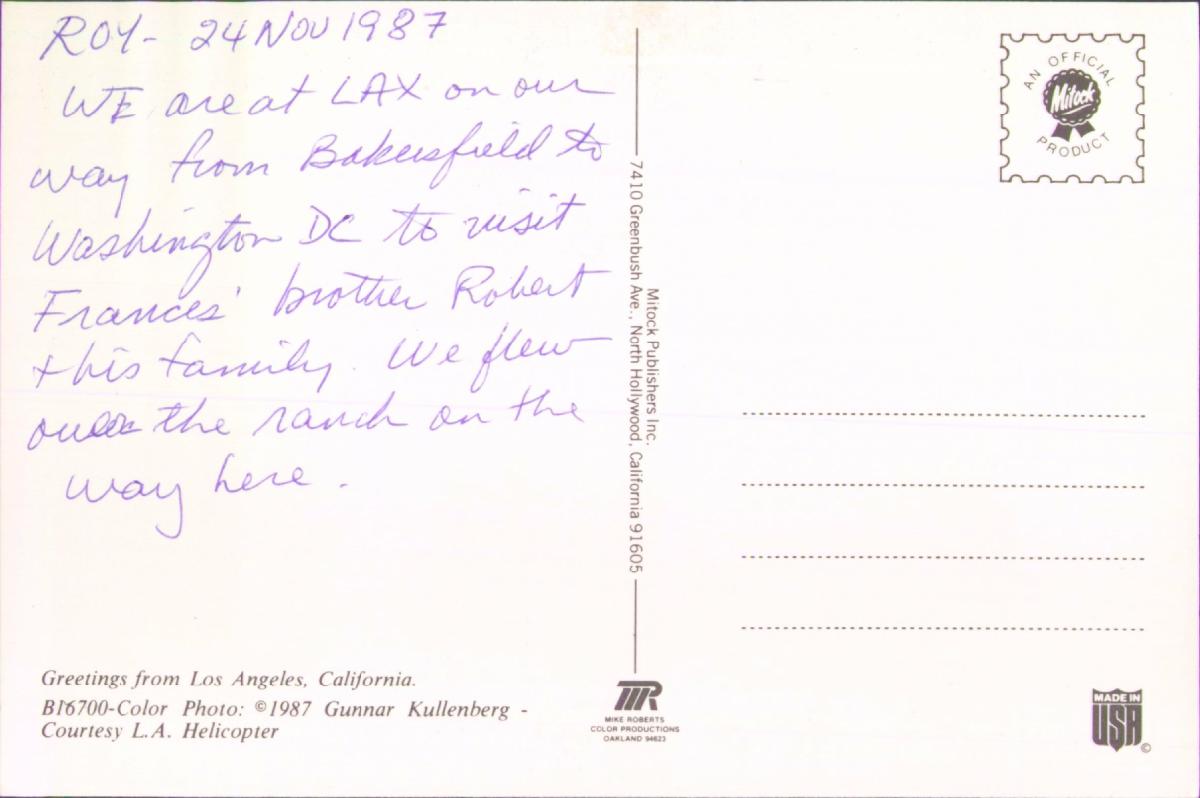 ROY- 24 NOV 1987
WE are at LAX on our
way from Bakersfield to
Washington DC to visit
Frances' brother Robert
+ his family. We flew
over the ranch on the
way here.
Greetings from Los Angeles, California.
B16700-Color Photo: ©1987 Gunnar Kullenberg -
Courtesy L.A. Helicopter
Mitock Publishers Inc.
7410 Greenbush Ave., North Hollywood, California 91605
MR
MIKE ROBERTS
COLOR PRODUCTIONS
OAKLAND 94623
AN OFFICIAL
Mitock
PRODUCT
MADE IN
USA
©